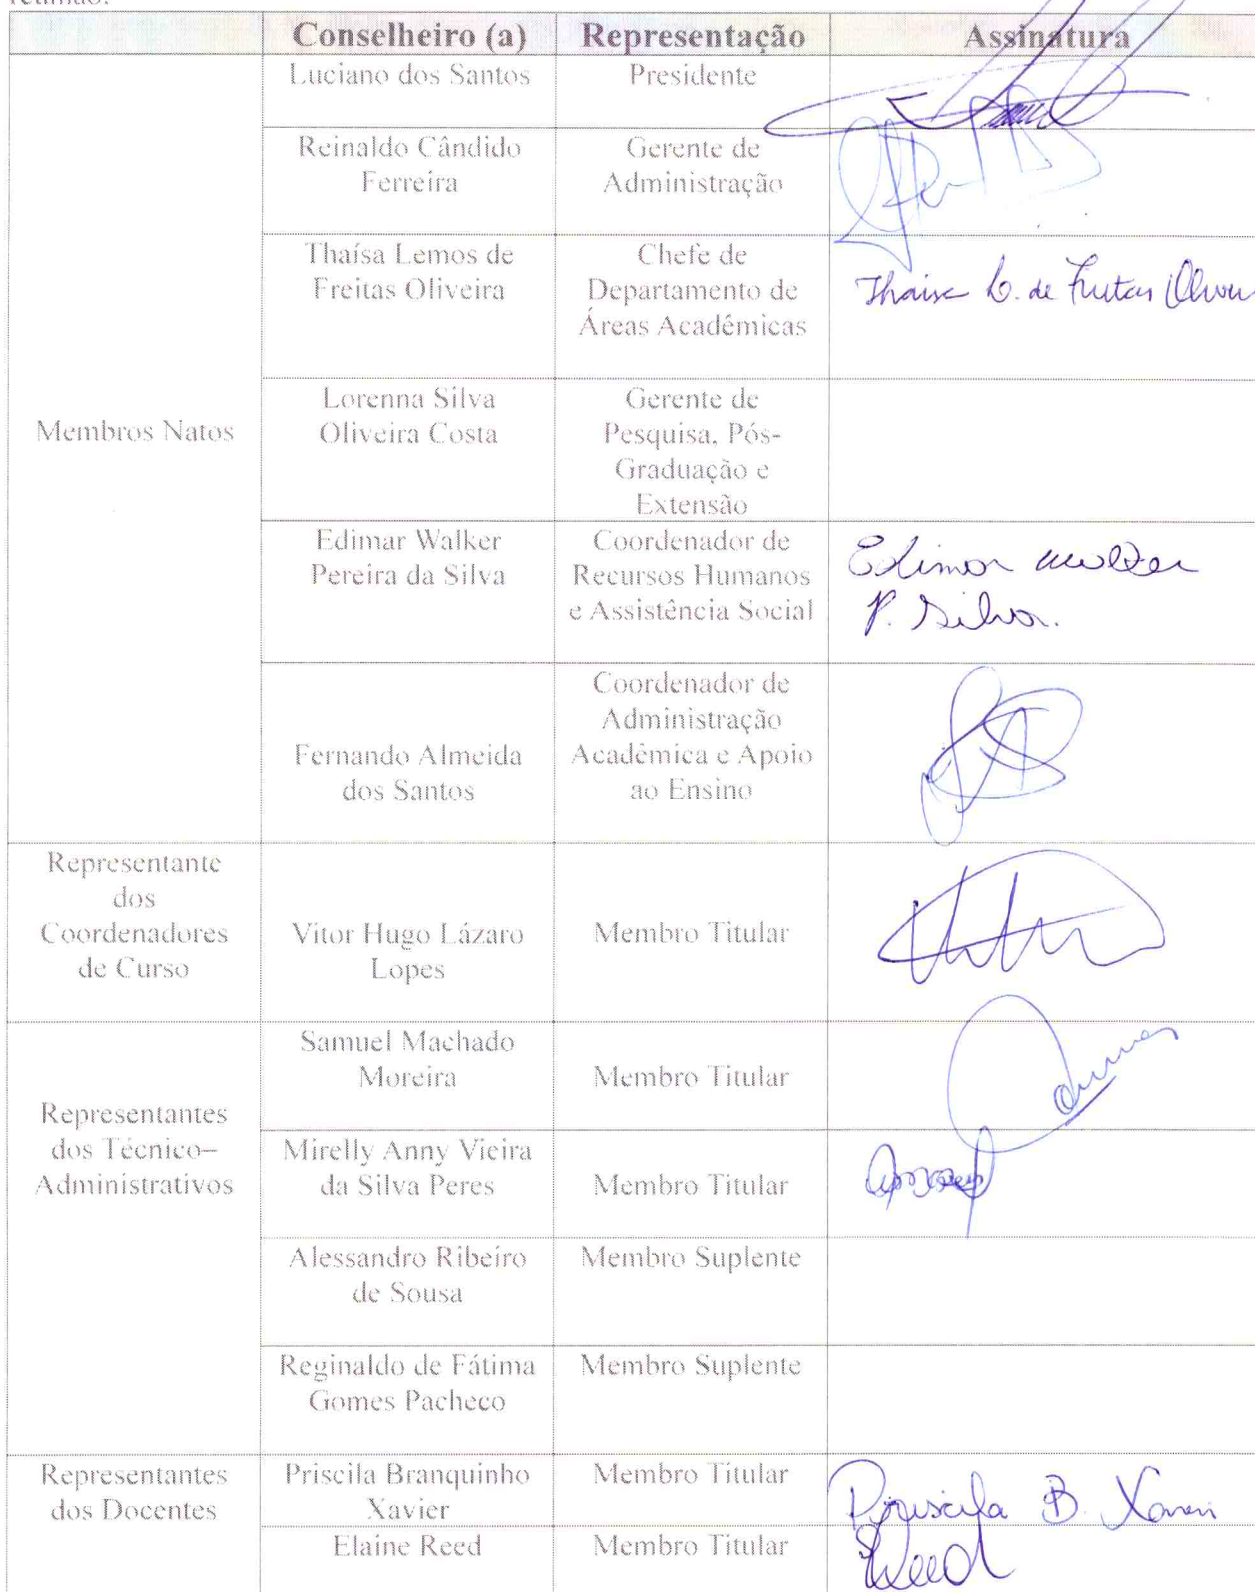 reunião.
Conselheiro (a) Representação Assinatura
Membros Natos
Luciano dos Santos
Presidente
Reinaldo Cândido
Ferreira
Gerente de
Administração
Thaísa Lemos de
Freitas Oliveira
Chefe de
Departamento de
Áreas Acadêmicas
Thaisa L. de Freitas Oliveir
Lorenna Silva
Oliveira Costa
Gerente de
Pesquisa, Pós-
Graduação e
Extensão
Edimar Walker
Pereira da Silva
Coordenador de
Recursos Humanos
e Assistência Social
Edimar Walker
P. Silva.
Fernando Almeida
dos Santos
Coordenador de
Administração
Acadêmica e Apoio
ao Ensino
Representante
dos
Coordenadores
de Curso
Vitor Hugo Lázaro
Lopes
Membro Titular
Representantes
dos Técnico–
Administrativos
Samuel Machado
Moreira
Membro Titular
Mirelly Anny Vieira
da Silva Peres
Membro Titular
Alessandro Ribeiro
de Sousa
Membro Suplente
Reginaldo de Fátima
Gomes Pacheco
Membro Suplente
Representantes
dos Docentes
Priscila Branquinho
Xavier
Membro Titular
Priscila B. Xavier
Elaine Reed
Membro Titular
EReed